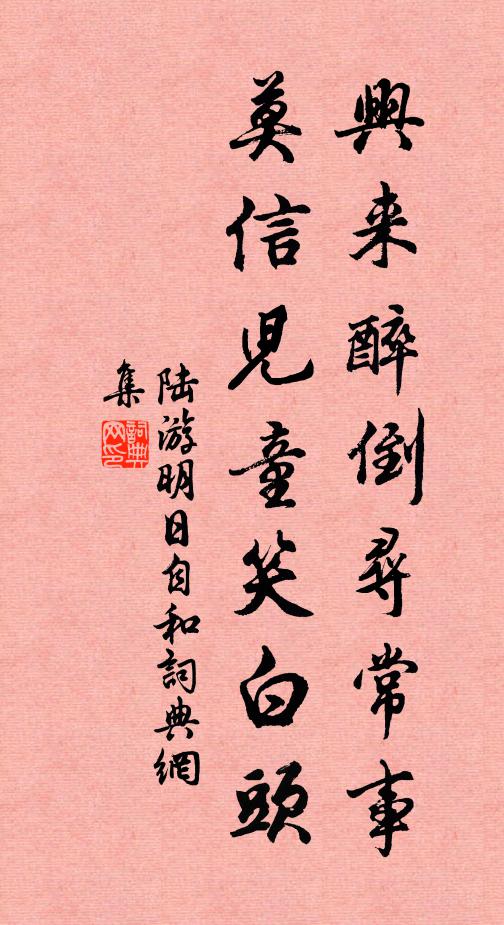 興来醉倒尋常事
莫信兒童笑白頭
陆游明日自和詞典網
集
詞典
网印